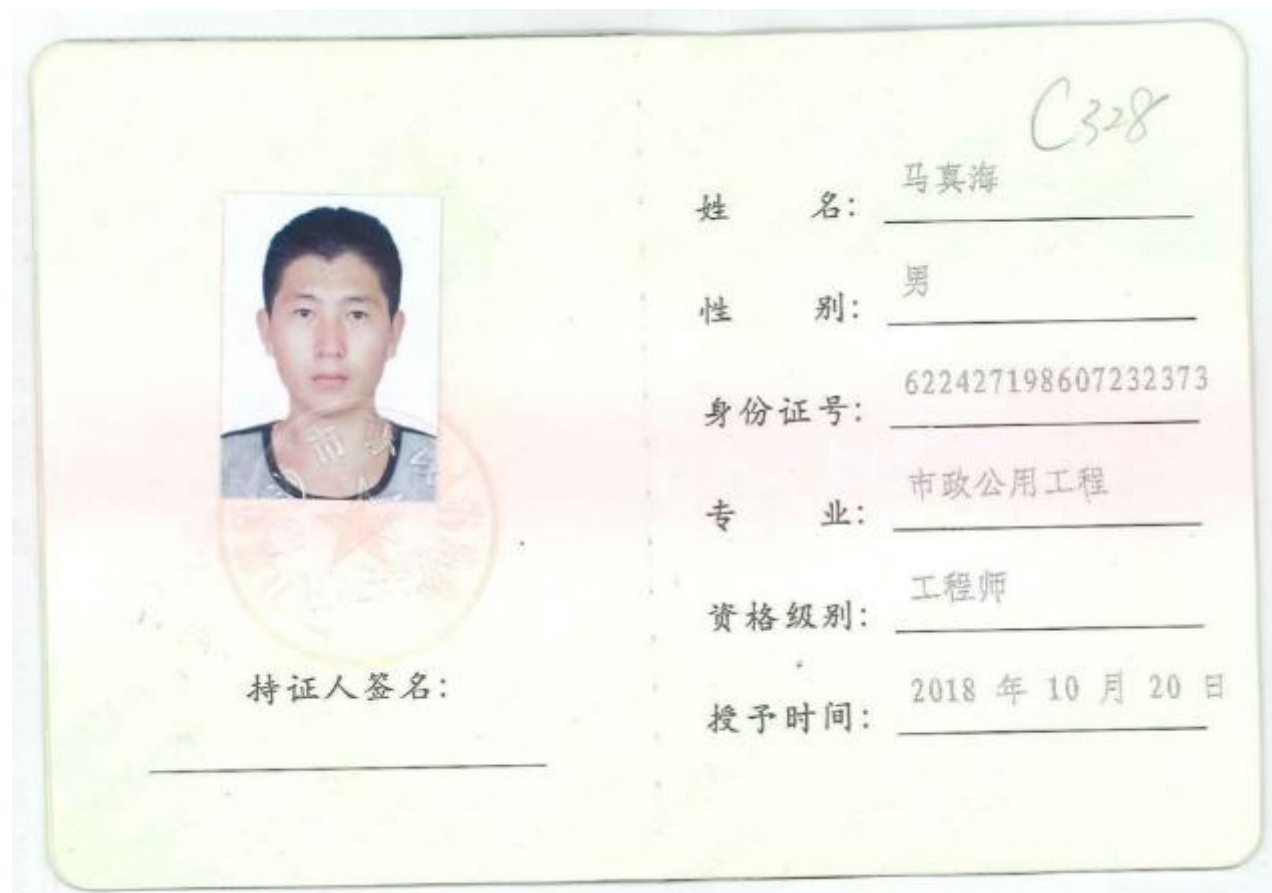 C328
姓 名: 马真海
性 别: 男
身份证号: 622427198607232373
专 业: 市政公用工程
资格级别: 工程师
授予时间: 2018 年 10 月 20 日
持证人签名: